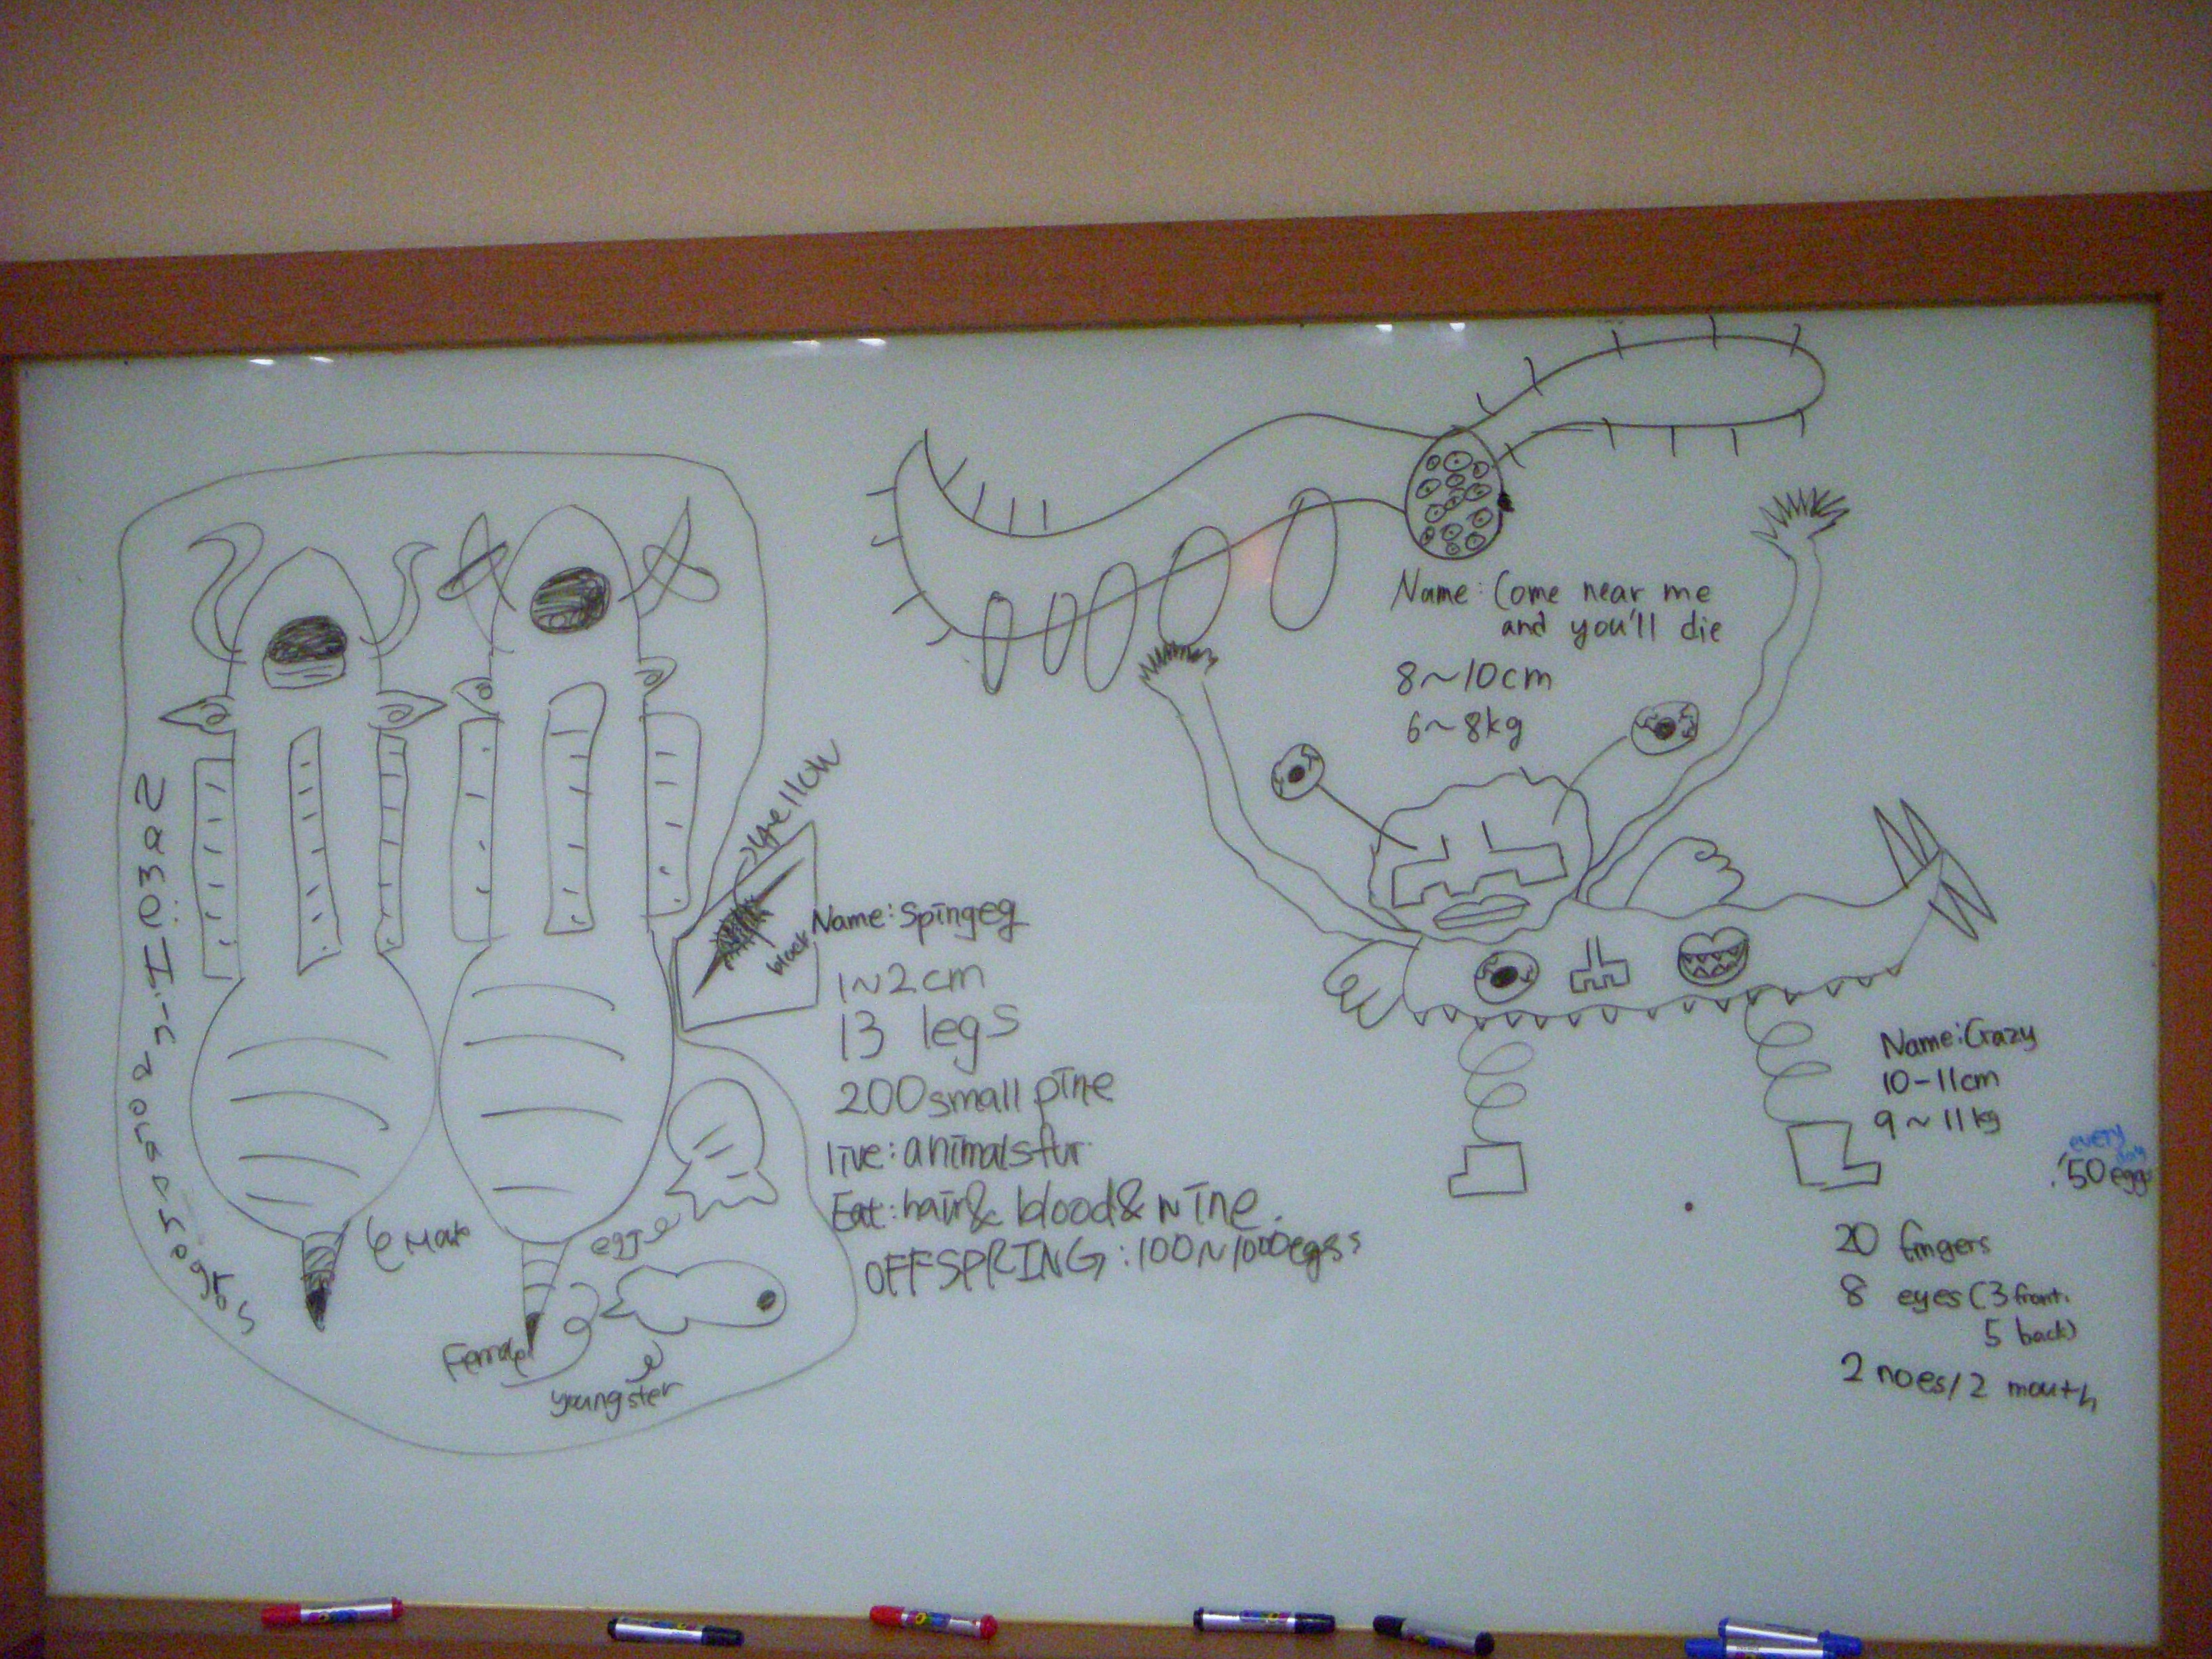 yellow
black
Name: Spingeg
1~2cm
13 legs
200 small pine
live: animals fur
Eat: hair & blood & wine.
OFFSPRING: 100~1000eggs
Male
Female
egg
youngster
Name: Come near me
and you'll die
8~10cm
6~8kg
Name: Crazy
10-11cm
9~11kg
every
day
50 eggs
20 fingers
8 eyes (3 front.
5 back)
2 noes / 2 mouth